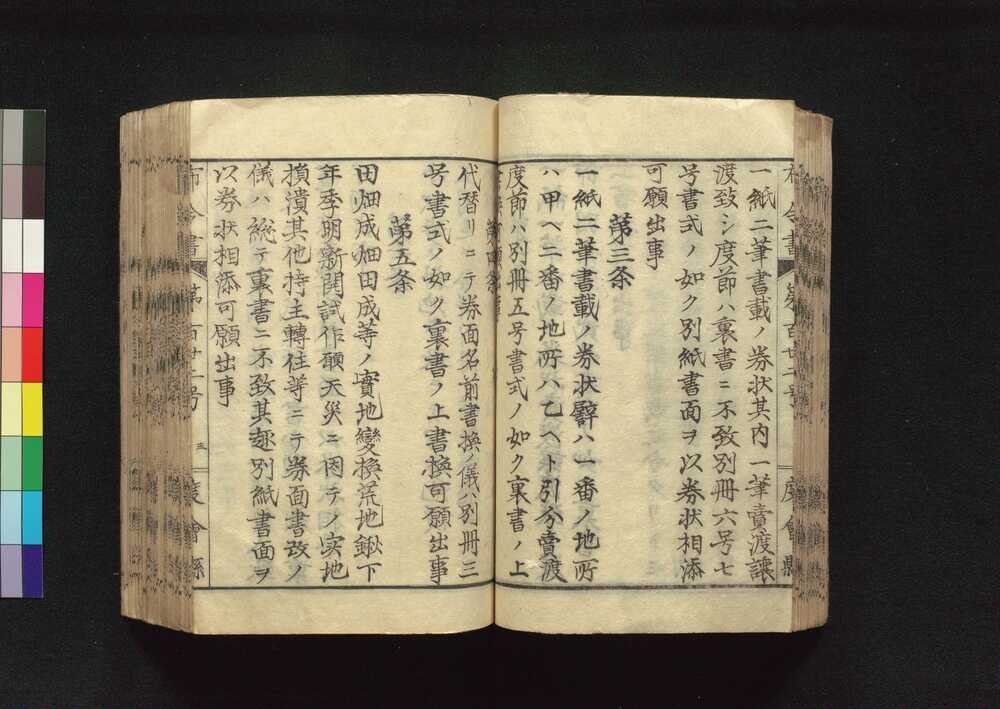 布令書 第百廿二号 度會縣
一紙二筆書載ノ券状其内一筆賣渡讓
渡致シ度節ハ裏書ニ不致別冊六号七
号書式ノ如ク別紙書面ヲ以券状相添
可願出事
第三条
一紙二筆書載ノ券状譬ハ一番ノ地所
ハ甲ヘ二番ノ地所ハ乙ヘト引分賣渡
度節ハ別冊五号書式ノ如ク裏書ノ上
第四条
代替リニテ券面名前書換ノ儀ハ別冊三
号書式ノ如ク裏書ノ上書換可願出事
第五条
田畑成畑田成等ノ實地變換荒地鍬下
年季明新開試作願天災ニ因テノ実地
損潰其他持主轉住等ニテ券面書改ノ
儀ハ総テ裏書ニ不致其趣別紙書面ヲ
以券状相添可願出事
布令書 第百廿二号 三 度會縣